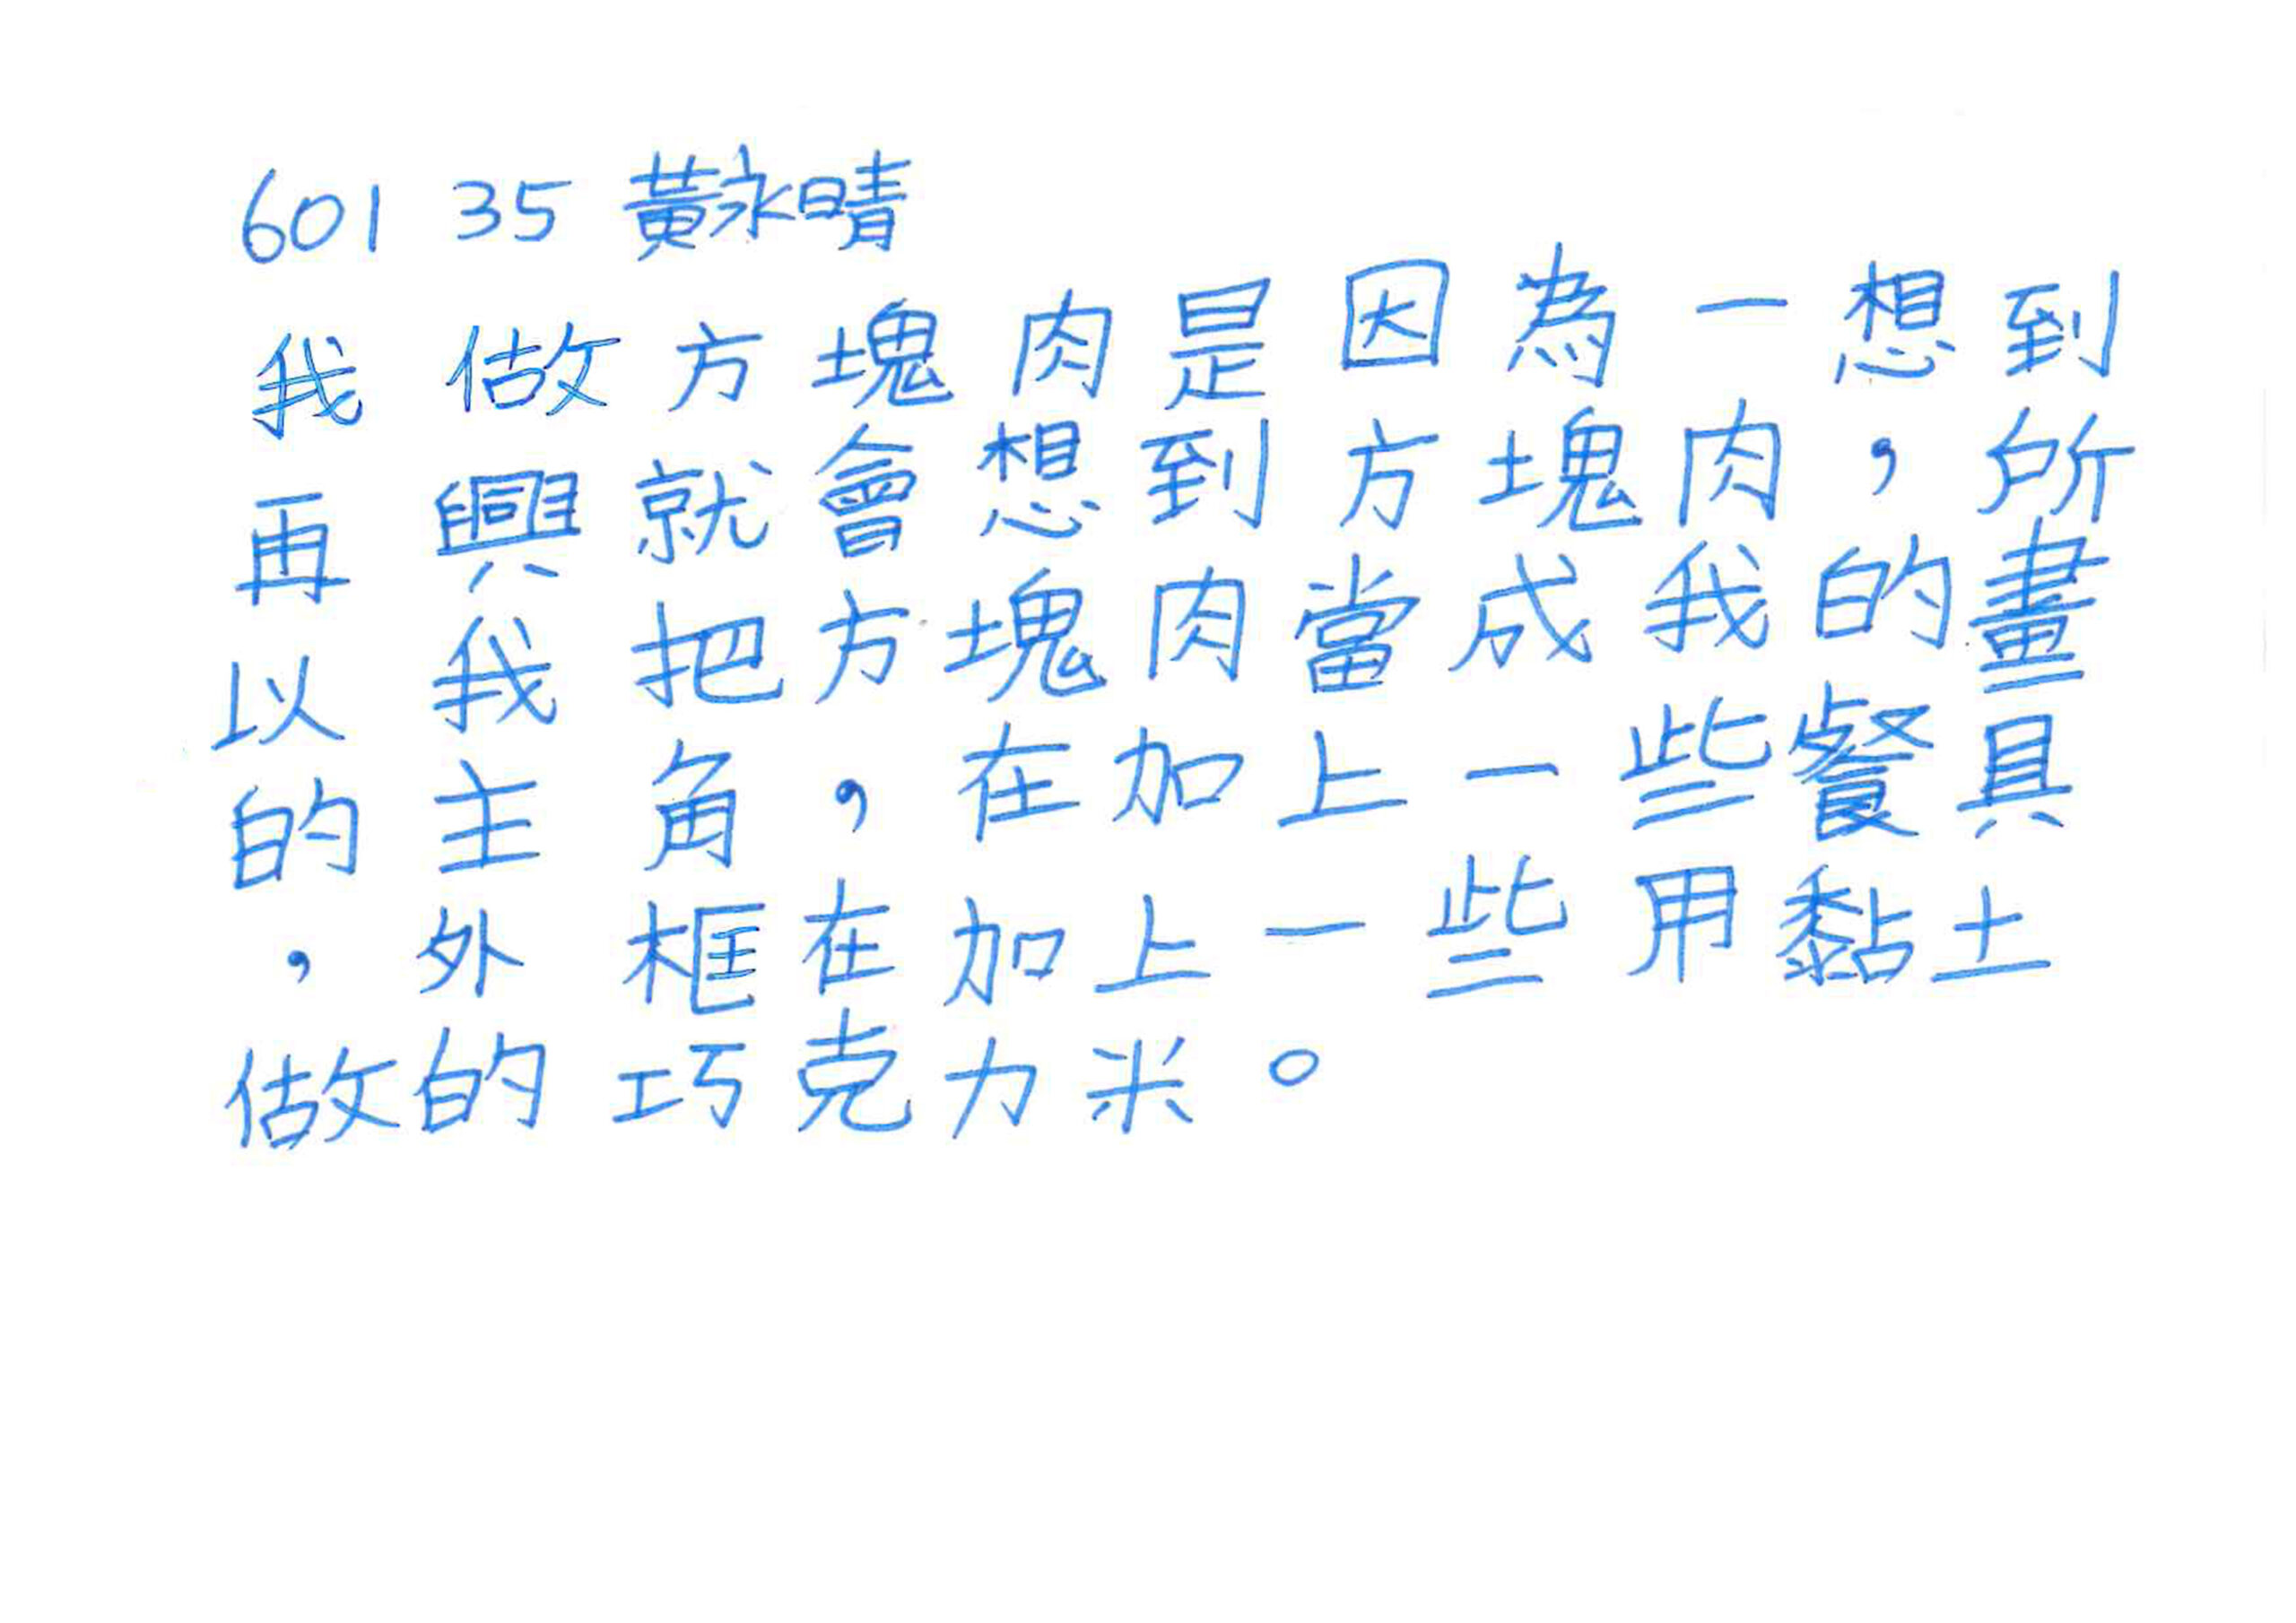 601 35 黃永晴
我做方塊肉是因為一想到
再興就會想到方塊肉，所
以我把方塊肉當成我的畫
的主角，在加上一些餐具
，外框在加上一些用黏土
做的巧克力米。